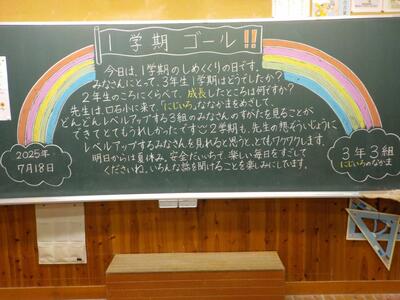 1学期 ゴール!!
今日は、1学期のしめくくりの日です。
みなさんにとって、3年生1学期はどうでしたか?
2年生のころにくらべて、成長したところは何ですか?
先生は口石小に来て、「にじいろ」ななかまをめざして、
どんどんレベルアップする3組のみなさんのすがたを見ることが
できてとてもうれしかったです☺2学期も、先生の想ぞういじょうに
レベルアップするみなさんを見れると思うと、とてもワクワクします。
明日からは夏休み。安全だいいちで、楽しい毎日をすごして
くださいね。いろんな話を聞けることを楽しみにしています。
2025年
7月18日
3年3組
にじいろのなかま